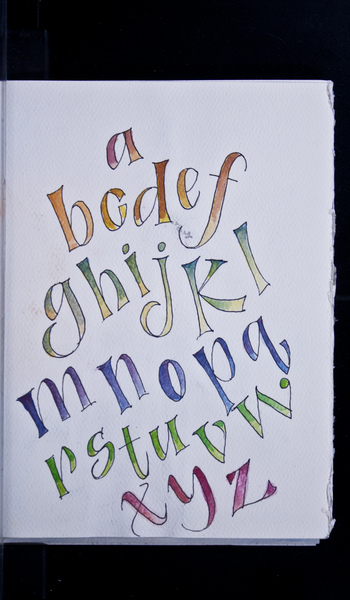 a
bcdef
ghijkl
mnopq
rstuvw
xyz